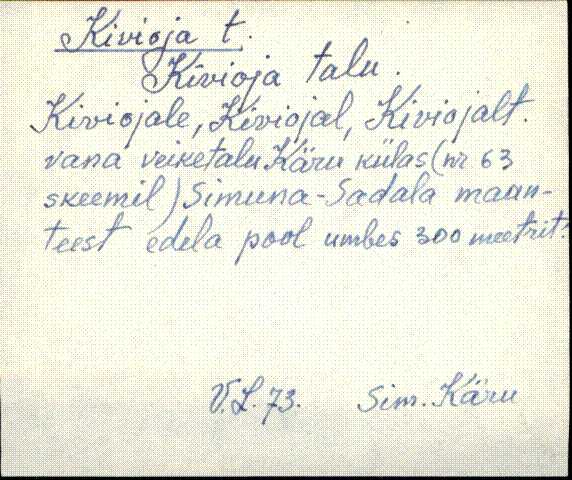 Kivioja t.
Kivioja talu.
Kiviojale, Kiviojal, Kiviojalt.
vana veiketalu Käru külas (nr 63
skeemil) Simuna-Sadala maan-
teest edela pool umbes 300 meetrit.
V.L. 73. Sim. Käru